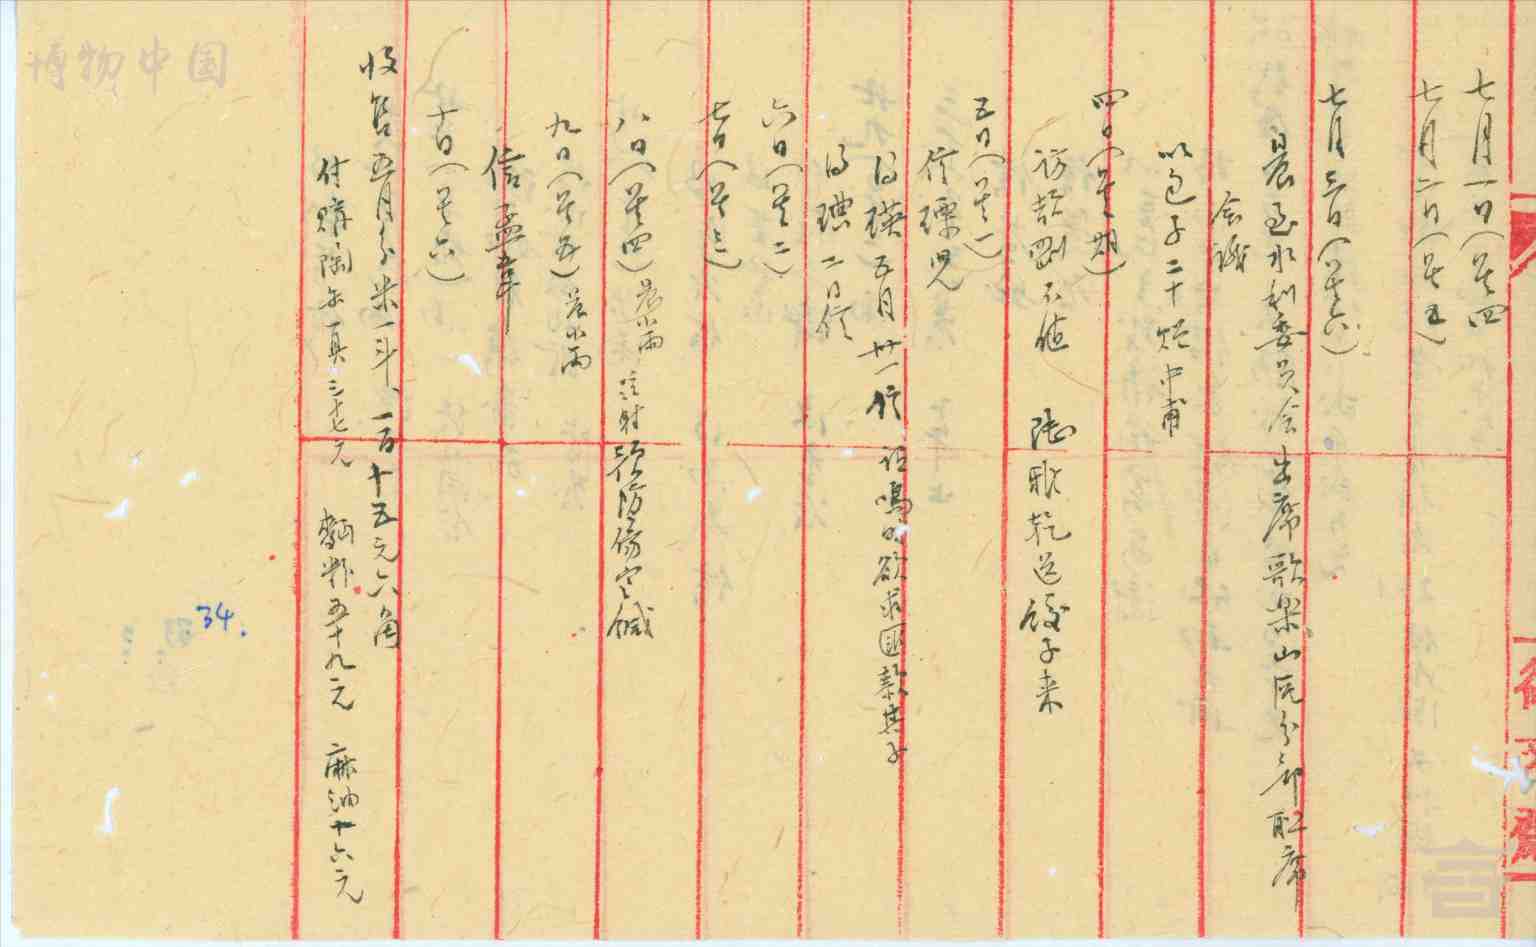 七月一日(星四
七月二日(星五)
七月三日(星六)
晨至水利委员会出席歌乐山院分部联席
会议
以包子二十赠中甫
四日(星期)
访哲刚不值 陆雅乾送饺子来
五日(星一)
信瓅儿
得瑛五月卅一信 坦鸣时欲求匯款其子
得璵二日信
六日(星二)
七日(星三)
八日(星四)晨小雨 注射预防伤寒鍼
九日(星五)晨小雨
信孟韋
十日(星六)
收售五月分米一斗、一百十五元六角
付购陶 三十七元 麵粉五十九元 麻油十六元
34.
博物中国